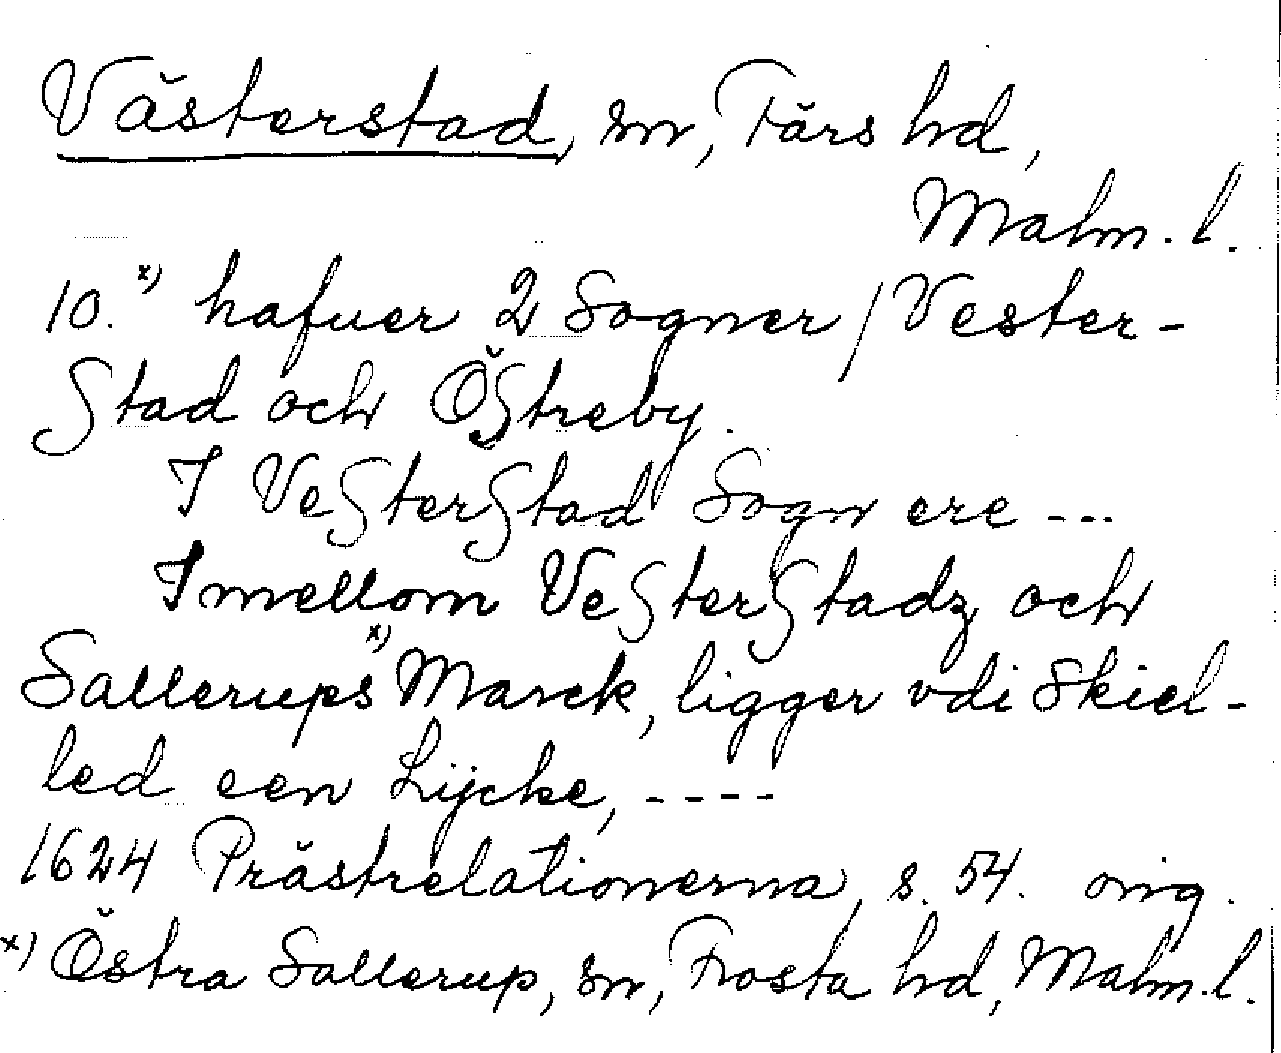 Västerstad, sn, Färs hd,
Malm. l.
10. x) hafuer 2 Sogner / Vester-
Stad och ÖStreby.
I VeSterStad Sogn ere ---
Imellom VeSterStadz och
Sallerups x) Marck, ligger vdi Skiel-
led een Lijcke, ----
1624 Prästrelationerna, s. 54. orig.
x) Östra Sallerup, sn, Frosta hd, Malm. l.